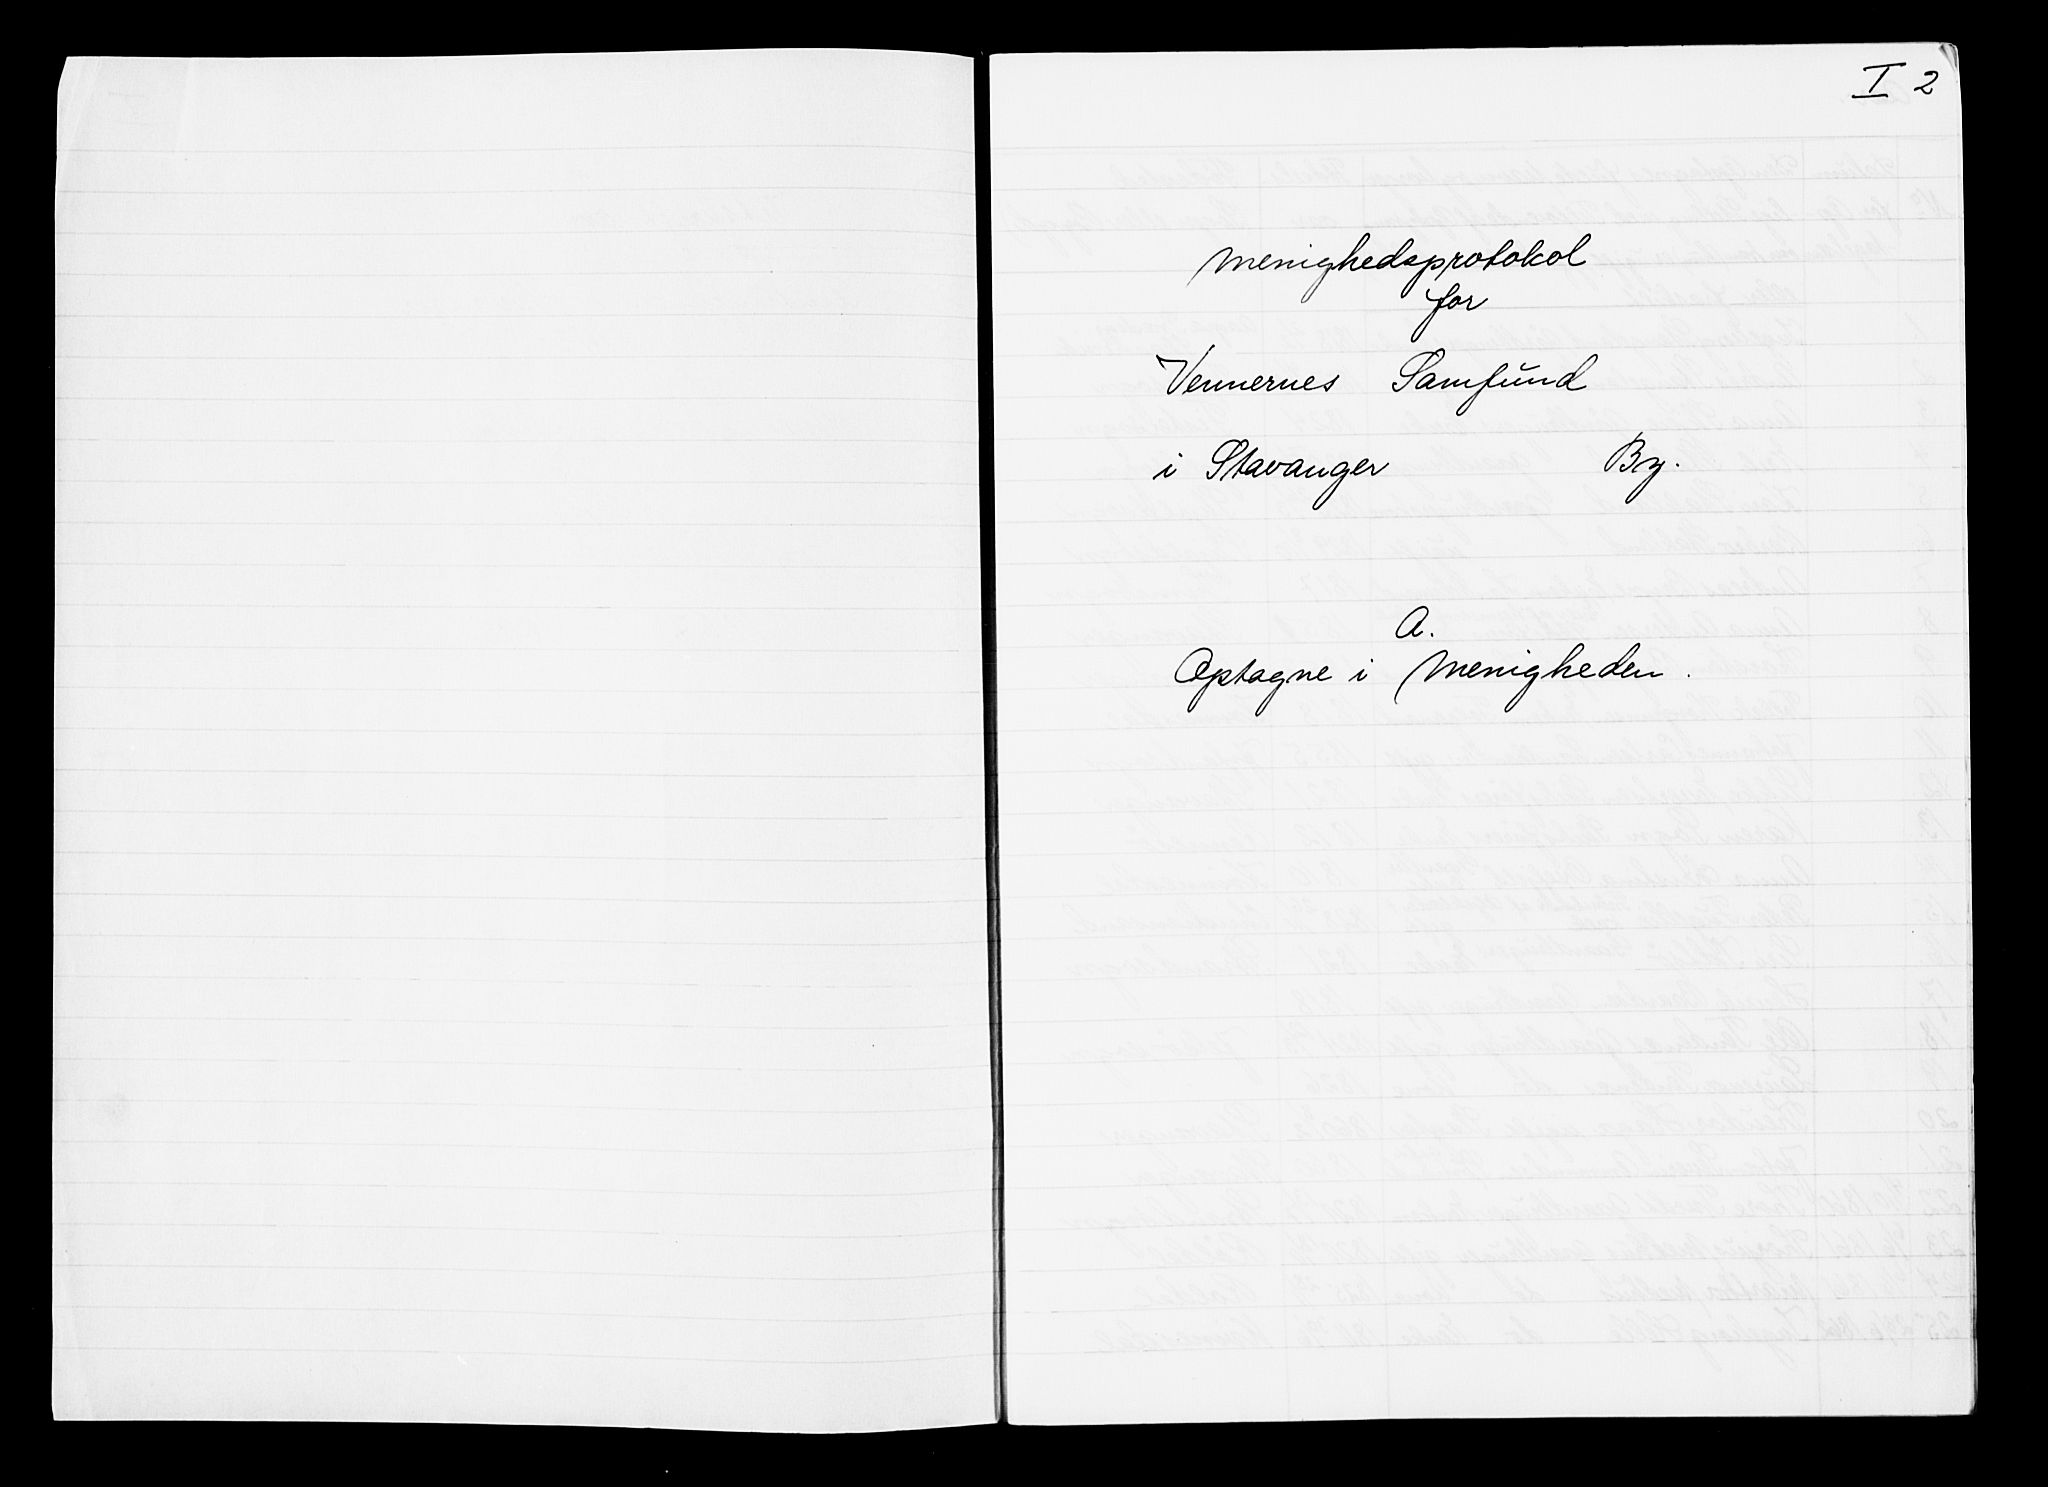 I 2
Menighedsprotokol
for
Vennernes Samfund
i Stavanger By.
A.
Optagne i Menigheden.